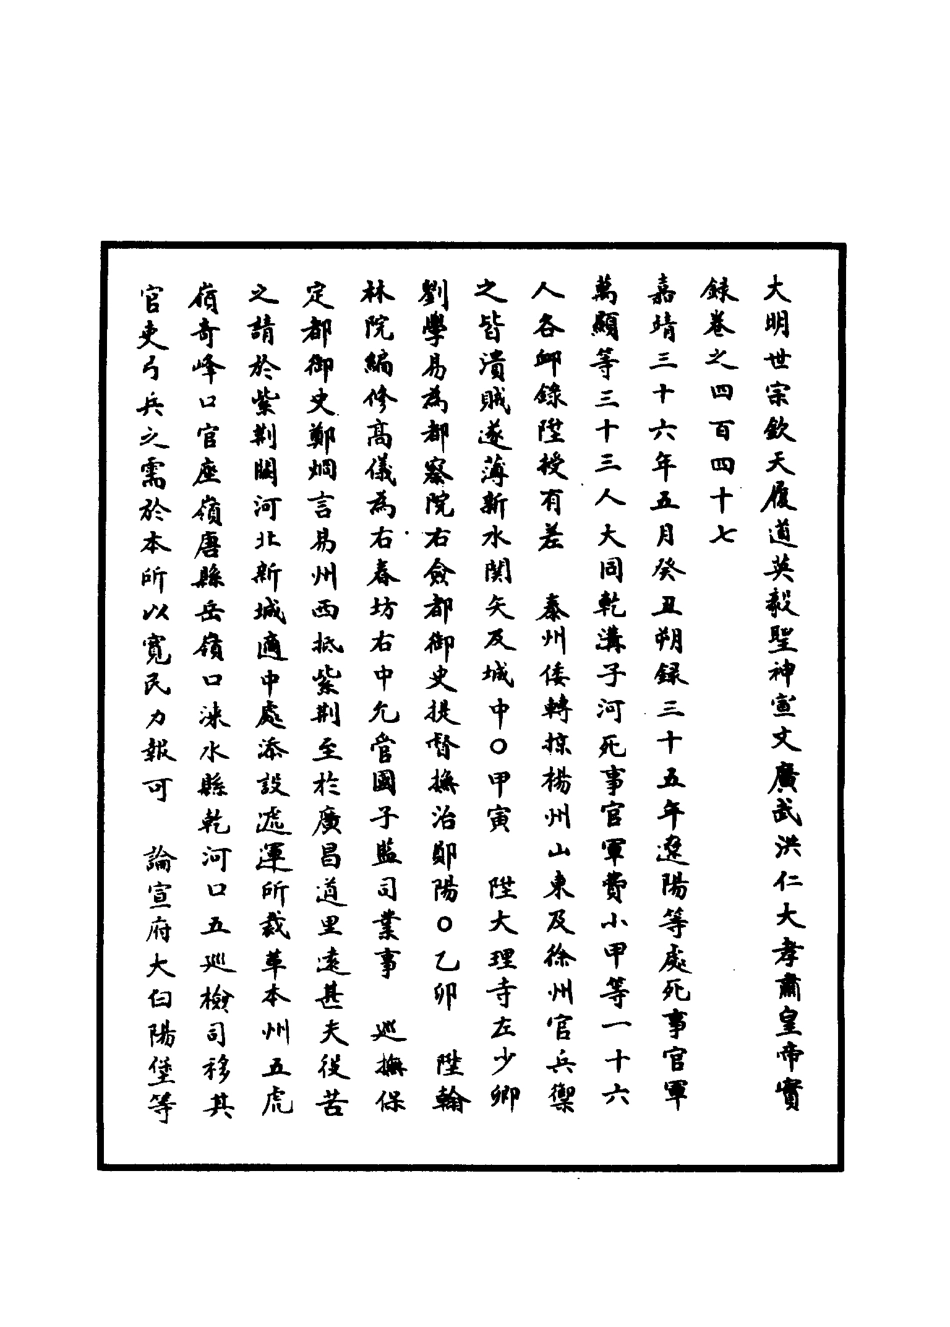 大明世宗欽天履道英毅聖神宣文廣武洪仁大孝肅皇帝實
録卷之四百四十七
嘉靖三十六年五月癸丑朔録三十五年遼陽等處死事官軍
萬顯等三十三人大同乾溝子河死事官軍費小甲等一十六
人各卹錄陞授有差　秦州倭轉掠楊州山東及徐州官兵禦
之皆潰賊遂薄新水関矢及城中〇甲寅　陞大理寺左少卿
劉學易為都察院右僉都御史提督撫治鄖陽〇乙卯　陞翰
林院編修高儀為右春坊右中允管國子監司業事　巡撫保
定都御史鄭烱言易州西抵紫荆至於廣昌道里遠甚夫役苦
之請於紫荆関河北新城適中處添設逓運所裁革本州五虎
嶺奇峰口官座嶺唐縣岳嶺口淶水縣乾河口五巡檢司移其
官吏弓兵之需於本所以寬民力報可　論宣府大白陽堡等